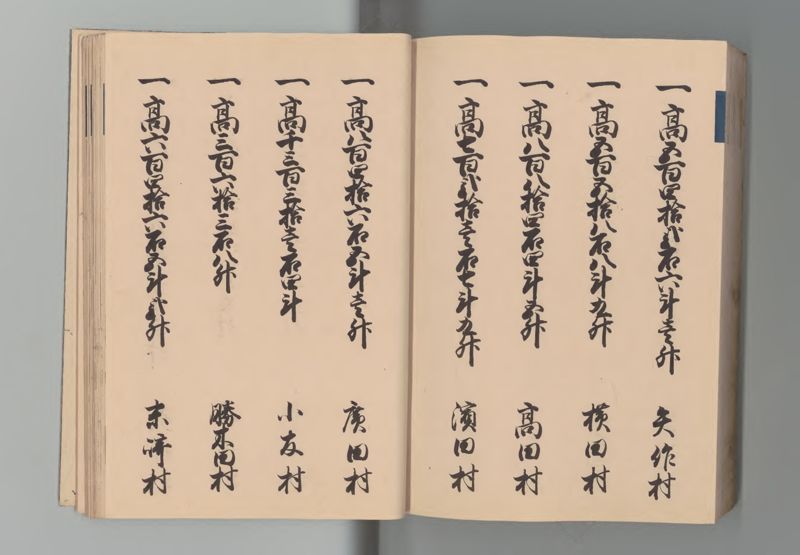 一高五百四拾弐石六斗壱升 矢作村
一高五百五拾八石八斗九升 横田村
一高八百八拾四石四斗五升 高田村
一高七百弐拾壱石七斗九升 濱田村
一高八百四拾六石五斗壱升 廣田村
一高千三百三拾壱石四斗 小友村
一高三百六拾三石八升 勝木田村
一高六百四拾六石五斗弐升 末崎村